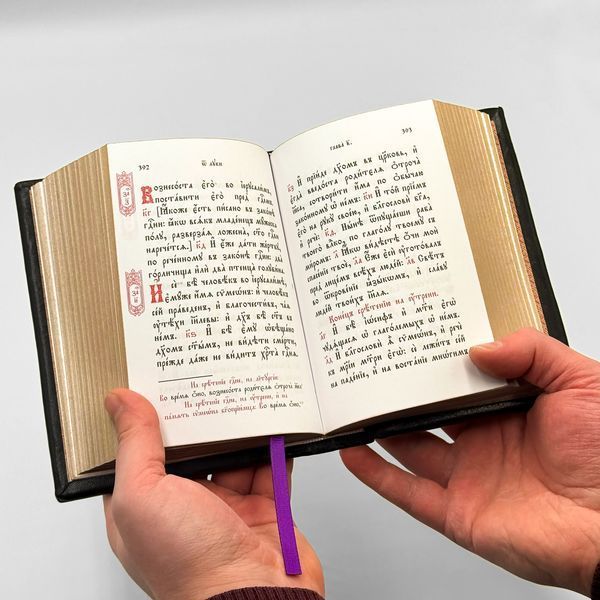 392
ѿ луки
Вознесоста єго̀ во і҆ерⷭ҇ли́мъ,
поста́вити є҆го̀ пред̾ гдⷭ҇емъ,
кг [Ꙗ҆́коже є҆́сть пи́сано въ зако́нѣ
гдⷭ҇ни: ꙗ҆́кѡ всѧ́къ младе́нецъ мꙋ́жеска
по́лꙋ, разверза́ѧ ложесна̀, ст҃о гдⷭ҇еви
нарече́тсѧ.] кд И҆ є҆́же да́ти же́ртвꙋ,
по рече́нномꙋ въ зако́нѣ гдⷭ҇ни: два
го́рличища и҆лѝ два птенца̀ голꙋби̑на.
И҆ сѐ бѣ̀ человѣ́къ во і҆ерⷭ҇ли́мѣ,
є҆мꙋ́же и҆́мѧ сѷмеѡ́нъ: и҆ человѣ́къ
се́й пра́веденъ, и҆ благочести́въ, ча́ѧ
ᲂу҆тѣ́хи і҆и҃левы: и҆ дх҃ъ бѣ̀ ст҃ъ въ
не́мъ. кѕ И҆ бѣ̀ є҆мꙋ̀ ѡ҆бѣща́но
дх҃омъ ст҃ы́мъ, не ви́дѣти сме́рти,
пре́жде да́же не ви́дитъ хрⷭ҇та̀ гдⷭ҇нѧ.
На срѣ́тенїе гдⷭ҇не, на лїтꙋргі́и:
Во вре́мѧ ѻ҆́но, вознесо́ста роди́телѧ ѻ҆троча̀ і҆и҃са
На срѣ́тенїе гдⷭ҇не, на ᲂу҆́трени, и҆ на
па́мѧть сѷмеѡ́на бг҃опрїи́мца: Во вре́мѧ ѻ҆́но,
глава̀ в҃.
393
кз И҆ прїи́де дх҃омъ въ це́рковь, и҆
є҆гда̀ введо́ста роди́телѧ ѻ҆троча̀
і҆и҃са, сотвори́ти и҆́ма по ѻ҆бы́чаю
зако́нномꙋ ѡ҆ не́мъ: ки И҆ то́й прїе́мъ
є҆го̀ на рꙋкꙋ̀ своє́ю, и҆ благословѝ бг҃а,
и҆ речѐ: кѳ Ны́нѣ ѿпꙋща́еши раба̀
твоего̀ влⷣко, по глаго́лꙋ твоемꙋ̀ съ
ми́ромъ: л Ꙗ҆́кѡ ви́дѣстѣ ѻ҆́чи моѝ
спасе́нїе твоѐ, ла Є҆́же є҆сѝ ᲂу҆гото́валъ
пред̾ лице́мъ всѣ́хъ люде́й: лв Свѣ́тъ
во ѿкрове́нїе ꙗ҆зы́кѡмъ, и҆ сла́вꙋ
люде́й твои́хъ і҆и҃лѧ.
Коне́цъ срѣ́тенїю на ᲂу҆́трени.
лг И҆ бѣ̀ і҆ѡ́сифъ и҆ мт҃и є҆гѡ̀
чꙋдѧ̑щасѧ ѡ҆ глаго́лемыхъ ѡ҆ не́мъ.
лд И҆ благословѝ ѧ҆̀ сѷмеѡ́нъ, и҆ речѐ
къ мр҃і́и мт҃ри є҆гѡ̀: сѐ лежи́тъ се́й
на паде́нїе, и҆ на воста́нїе мнѡ́гимъ